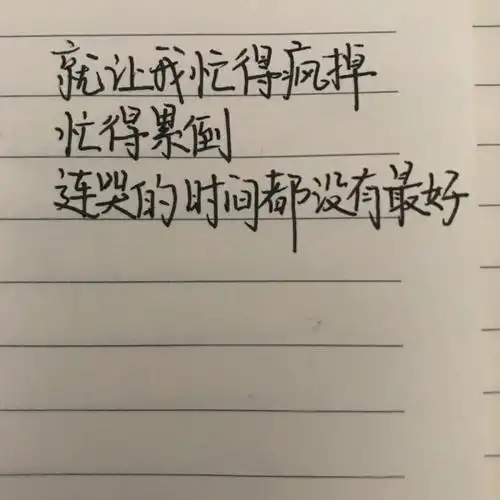 就让我忙得疯掉
忙得累倒
连哭的时间都没有最好